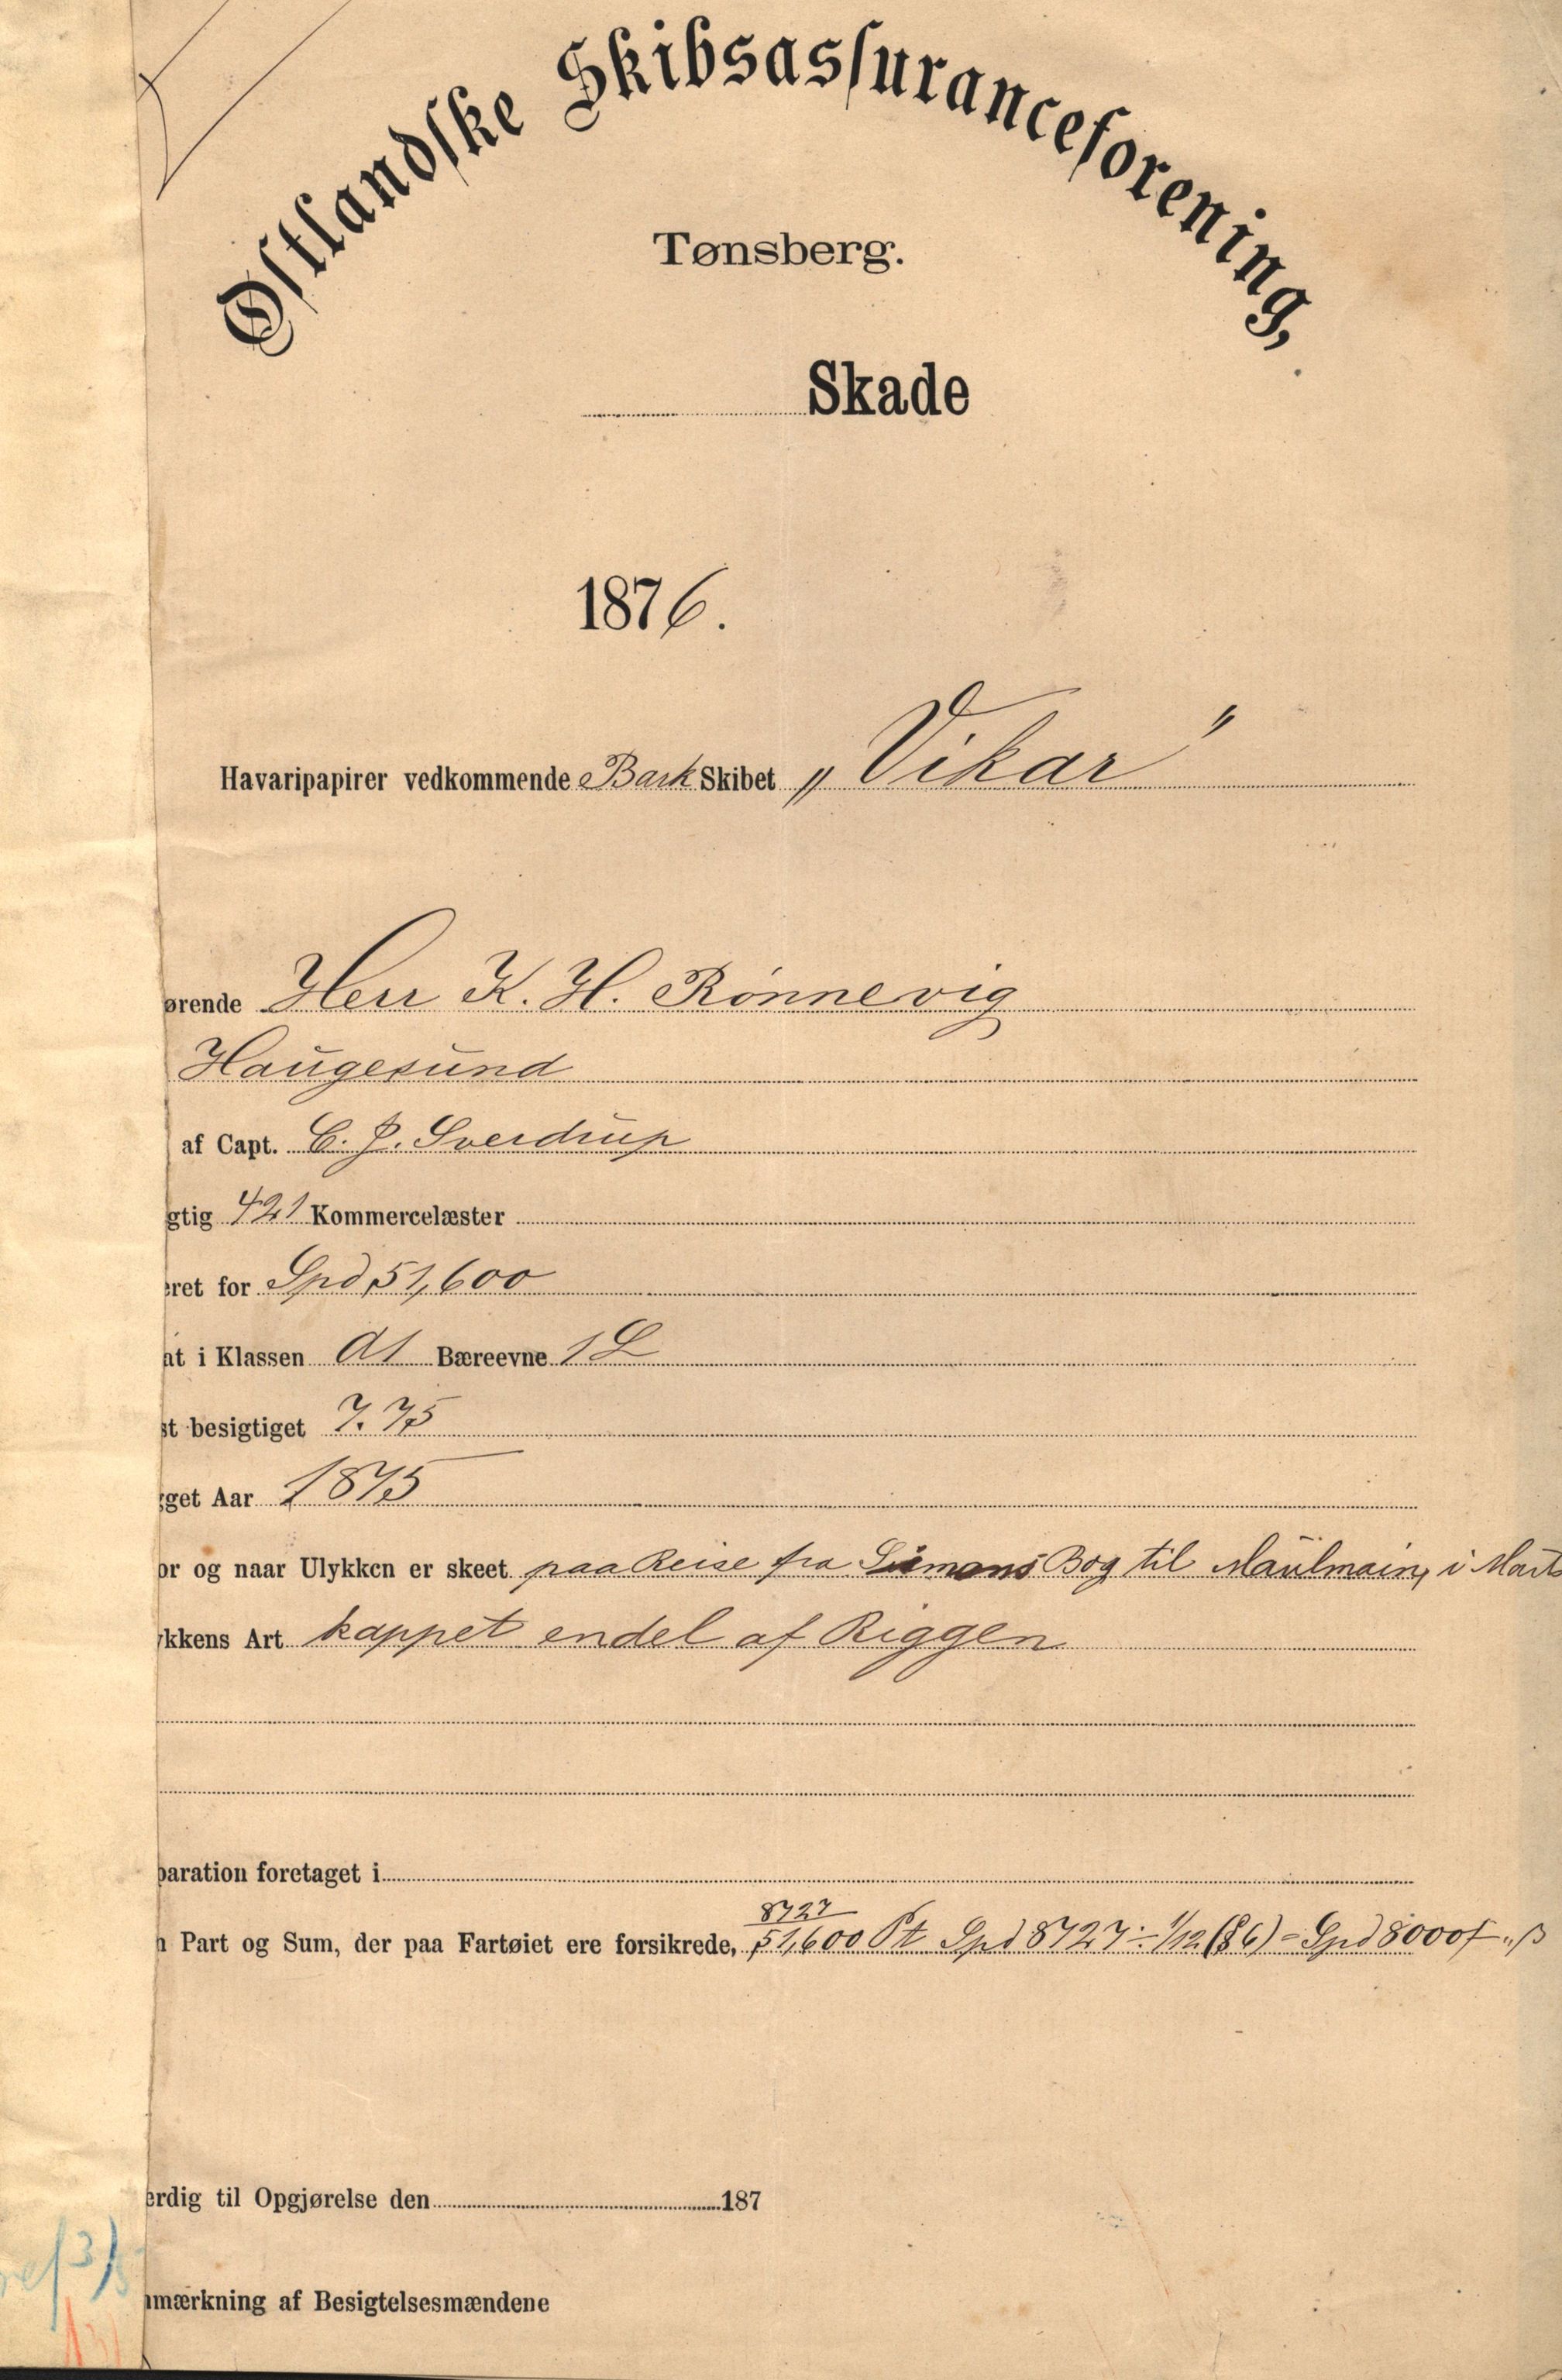 Østlandske Skibsassuranceforening,
Tønsberg.
Skade
1876.
Havaripapirer vedkommende Bark Skibet „Vikar"
ørende Herr K. H. Rønnevig
Haugesund
af Capt. C. J. Sverdrup
gtig 421 Kommercelæster
eret for Spd 51,600
at i Klassen A1 Bæreevne 1 L
st besigtiget 7. 75
gget Aar 1875
or og naar Ulykken er skeet paa Reise fra Simons Bog til Maulmain, i Marts
ykkens Art kappet endel af Riggen
paration foretaget i
8727
n Part og Sum, der paa Fartøiet ere forsikrede, 51,600 Pt Spd 8727 ÷ 1/12 (§ 6) = Spd 8000 f „ β
erdig til Opgjørelse den 187
mærkning af Besigtelsesmændene